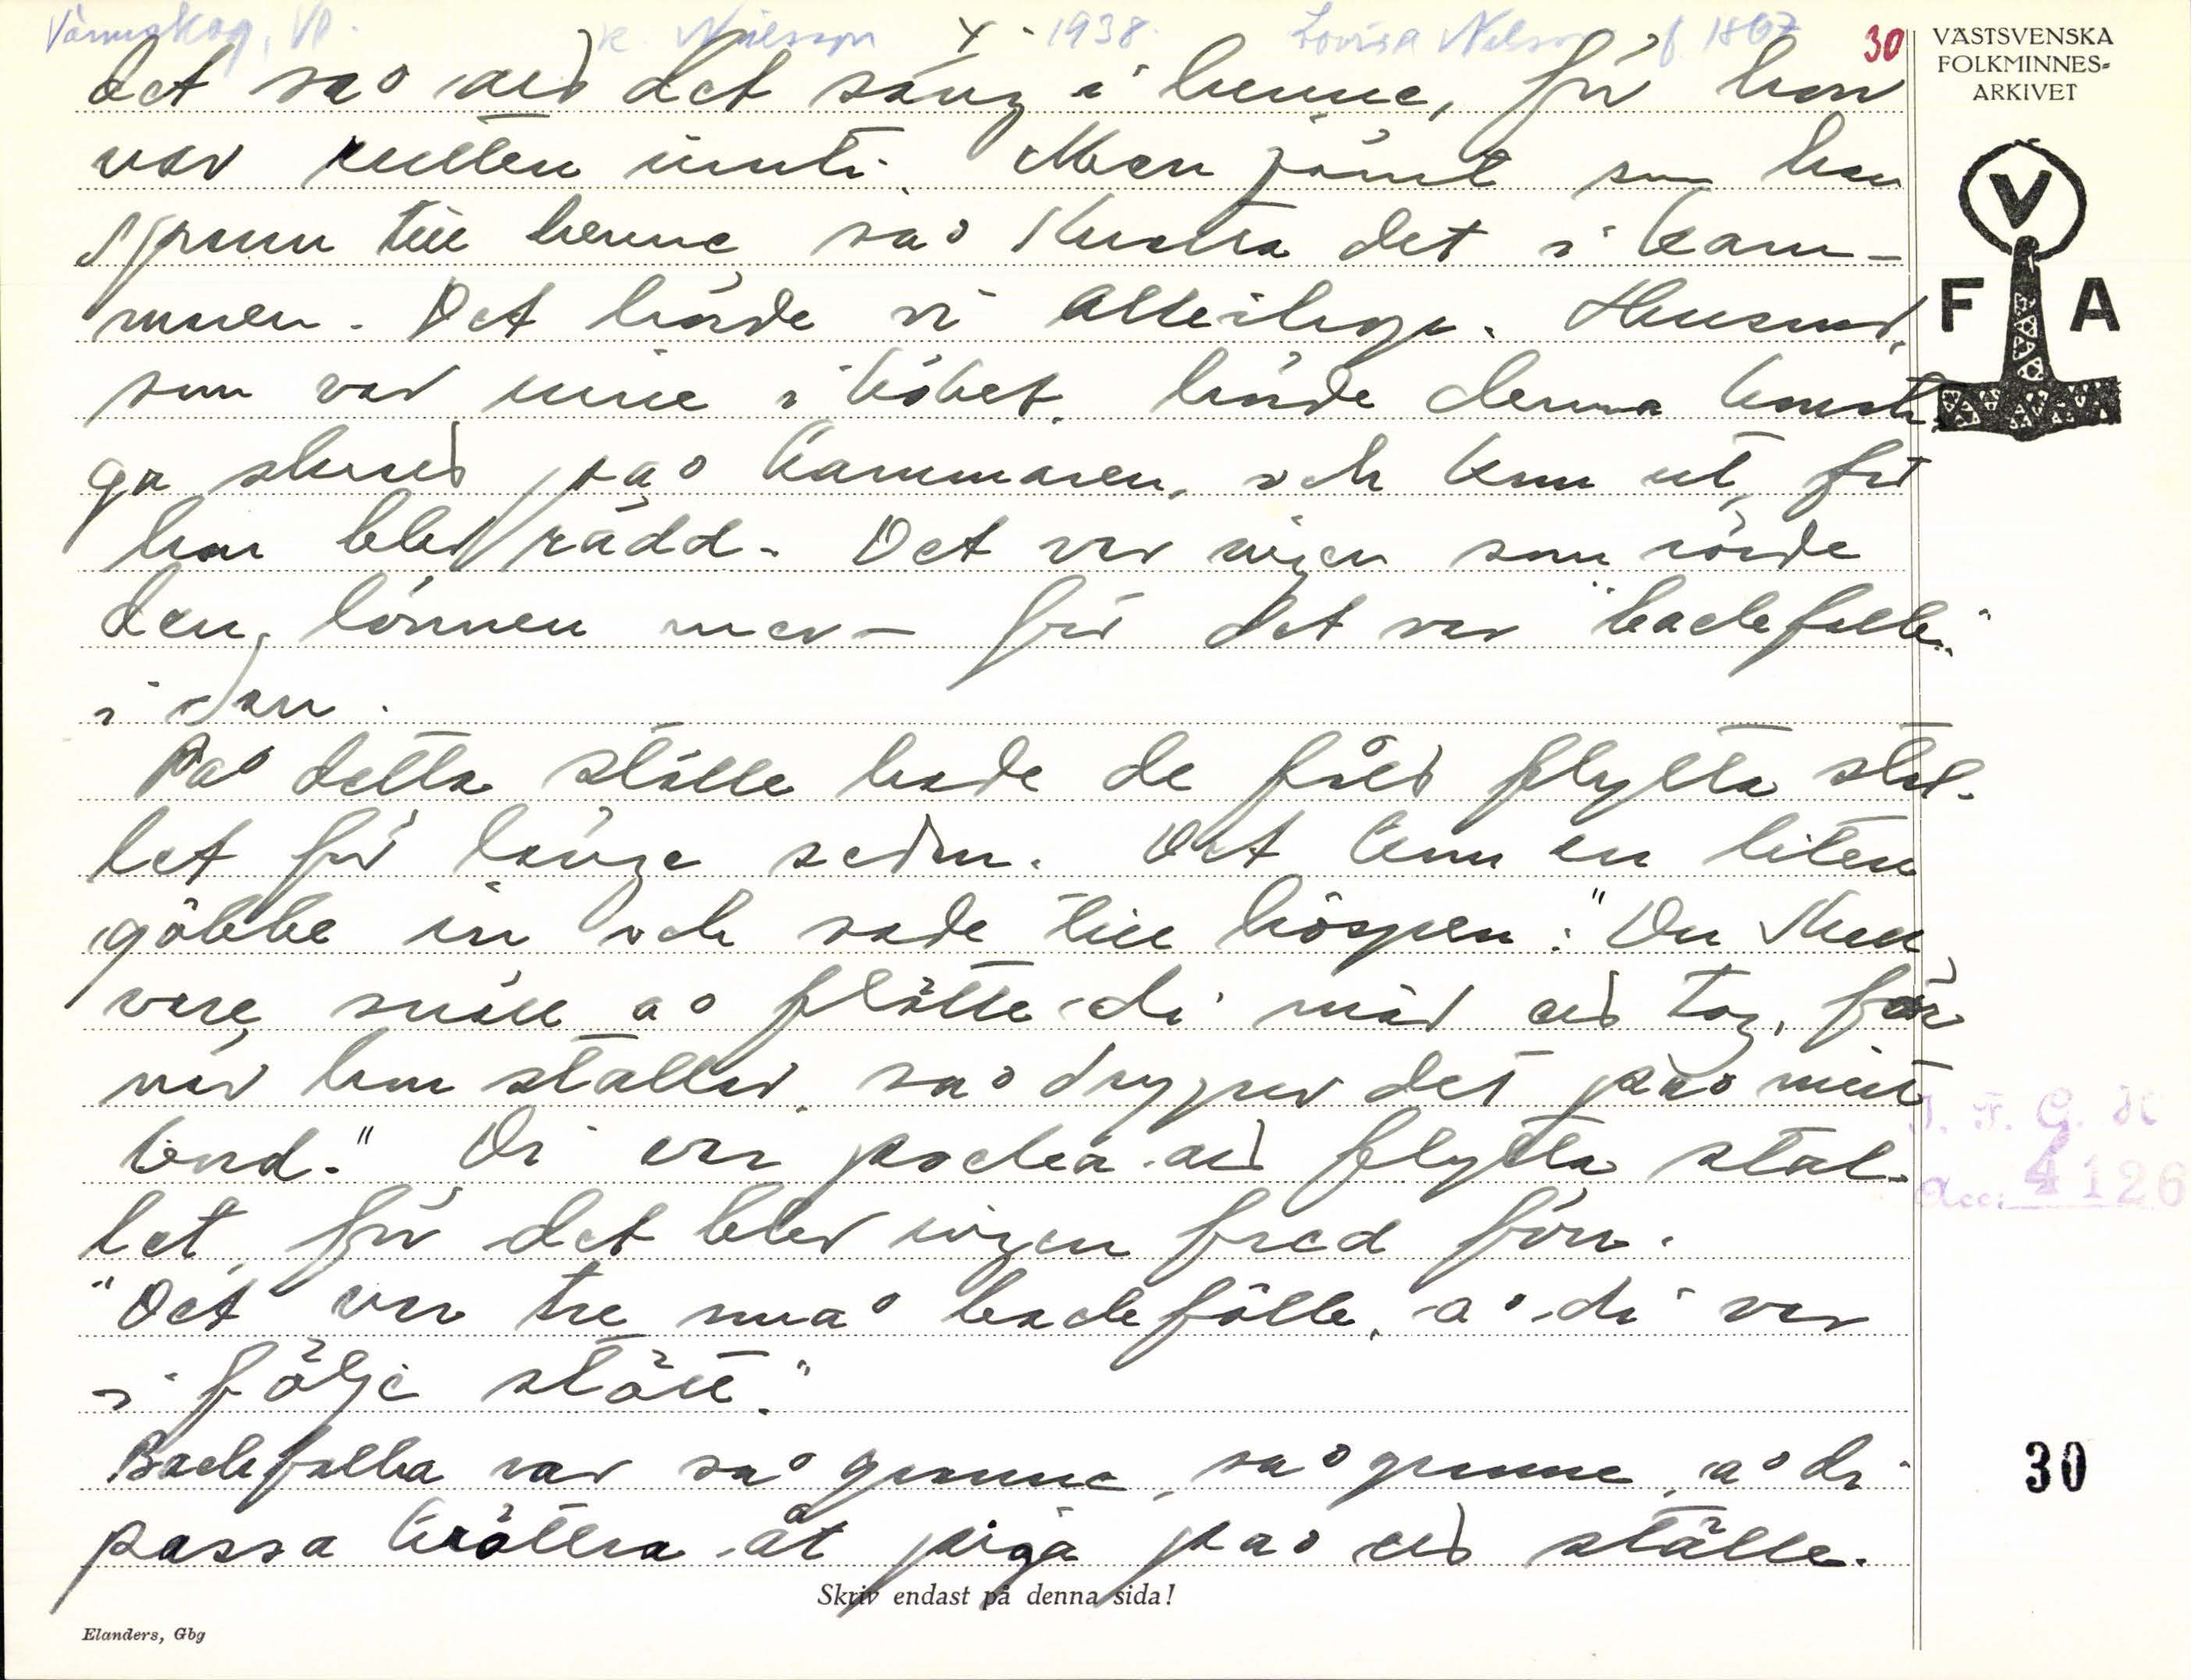 Värmskog, Vl. K. Nilsson X. 1938. Lovisa Nelson f. 1867 30
VÄSTSVENSKA
FOLKMINNES-
ARKIVET
V
F A
det så att det sang i henne, för hon
var rutten inuti. Men jämt som han
sprang till henne, så skratta det i kam-
maren. Det hörde vi allihopa. Husmor,
som var inne i köket, hörde denna konsti-
ga skratt på kammaren, och kom ut, för
hon blev rädd. Det var ingen som rörde
den lönnen mer — för det var "backefolk"
i dan.
På detta ställe hade de fått flytta stal-
let för länge sedan. Det kom en liten
göbbe in och sade till bonden: "Du skull
vere snäll å flötte di mär ett tag, för
när hon staller, så dryper det på mitt
bord." Di var pocka att flytta stal-
let, för det blev ingen fred förr.
"Det var tre små backefölle, å di var
i följe stött."
Backefolka var så granne, så granne, å di
passa krättra åt piga på ett ställe.
Skriv endast på denna sida!
Elanders, Gbg
I. F. G. H
Acc: 4126
30